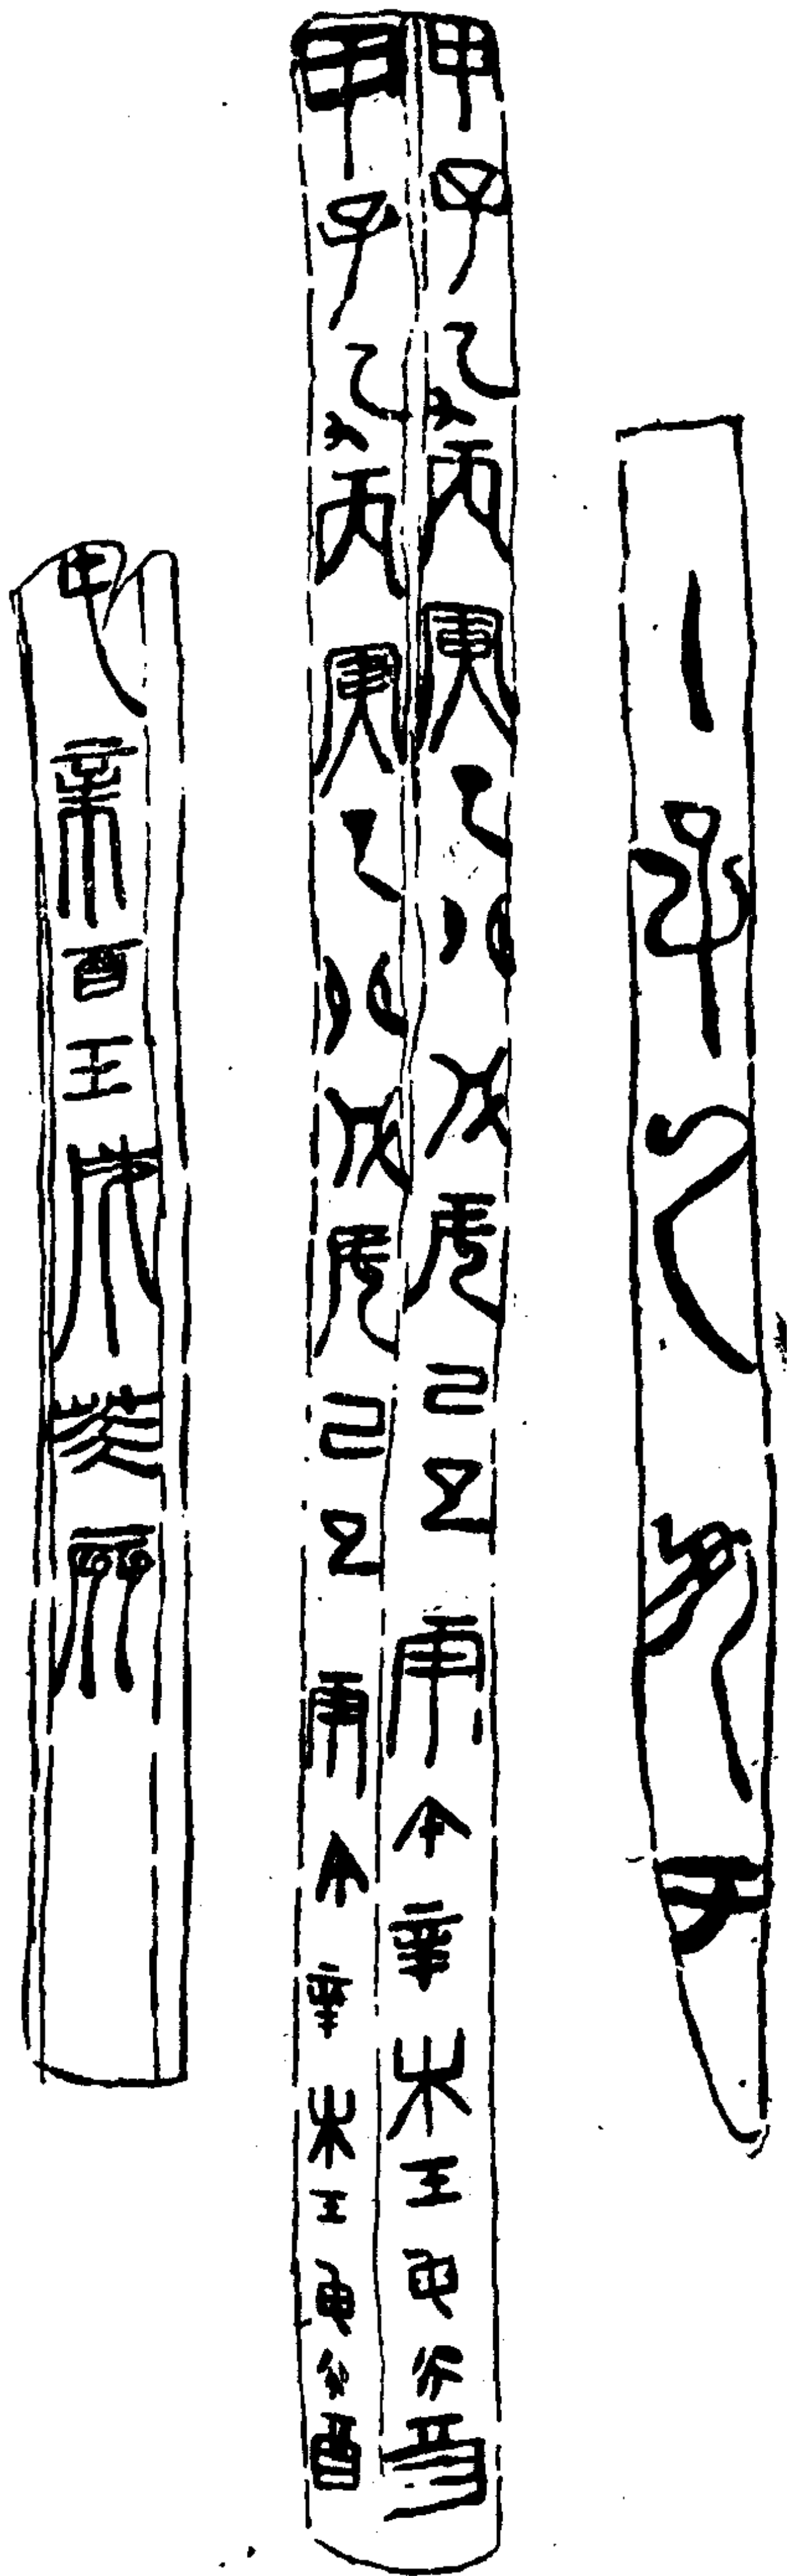 子乙丑
甲子乙丑丙寅丁卯戊辰己巳庚午辛未壬申癸酉
甲子乙丑丙寅丁卯戊辰己巳庚午辛未壬申癸酉
申辛酉壬戌癸亥